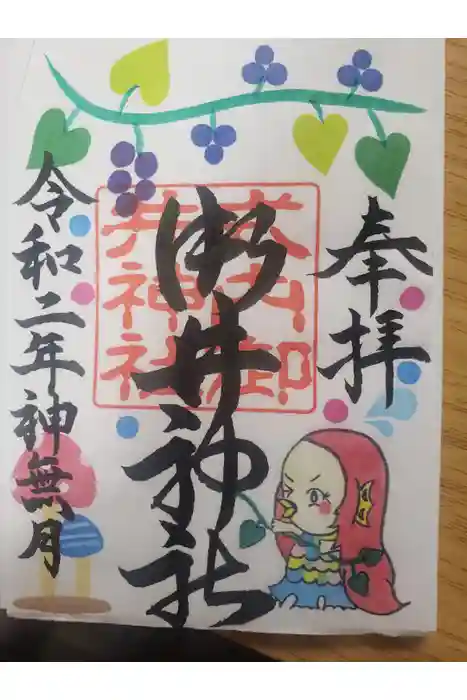 奉拝
御
井神社
御井神社
令和二年神無月